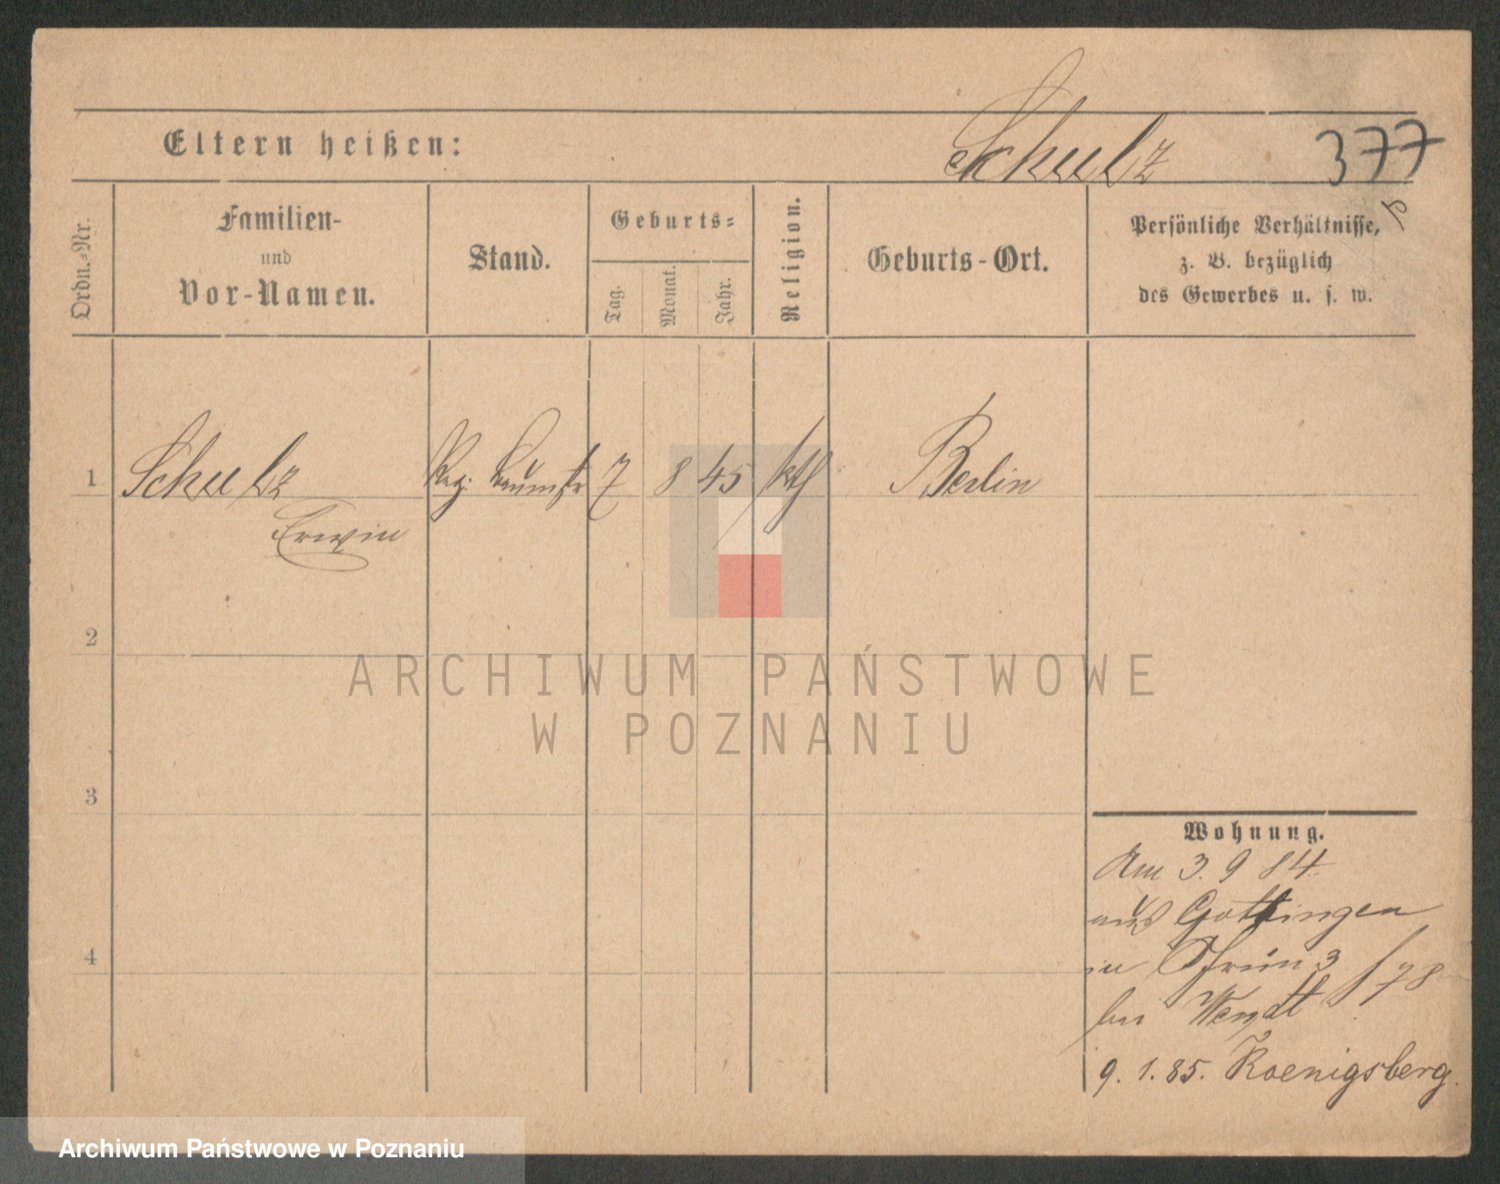 Eltern heißen:
Schulz
377
Ordn.-Nr.
Familien-
und
Vor-Namen.
Stand.
Geburts-
Tag.
Monat.
Jahr.
Religion.
Geburts-Ort.
Persönliche Verhältnisse,
z. B. bezüglich
des Gewerbes u. s. w.
1 Schulz Reg. Baumstr 7 8 45 kth Berlin
Erwin
2
3
4
Wohnung.
Am 3. 9 84.
aus Gottingen
in 3 f 78
bei Wendt
9. 1. 85. Koenigsberg.
ARCHIWUM PAŃSTWOWE
W POZNANIU
Archiwum Państwowe w Poznaniu